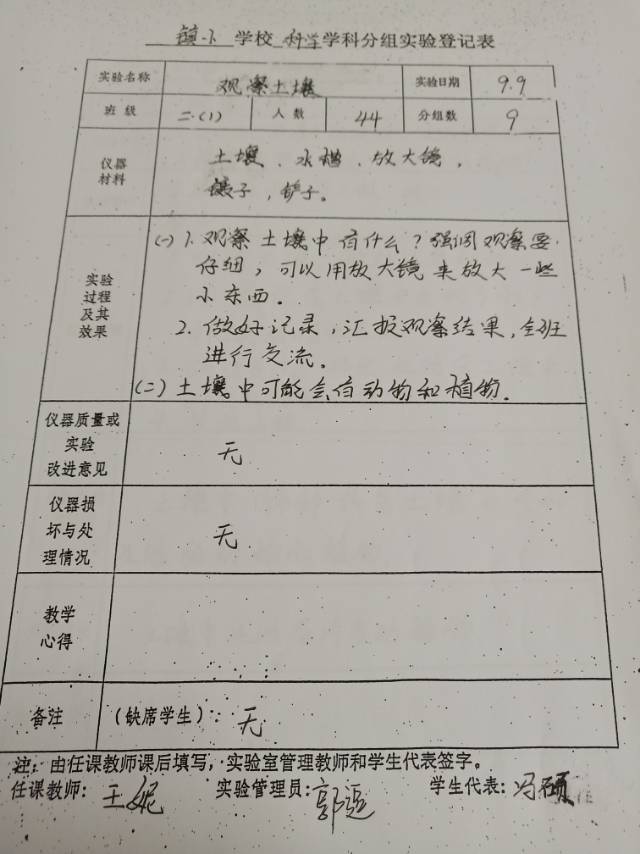 镇小 学校 科学 学科分组实验登记表
实验名称 观察土壤 实验日期 9.9
班 级 二.(1) 人 数 44 分组数 9
仪器
材料
土壤、水槽、放大镜,
镊子,铲子。
实验
过程
及其
效果
(一) 1. 观察土壤中有什么?强调观察要
仔细,可以用放大镜来放大一些
小东西。
2. 做好记录,汇报观察结果,全班
进行交流。
(二) 土壤中可能会有动物和植物.
仪器质量或
实验
改进意见
无
仪器损
坏与处
理情况
无
教学
心得
备注 (缺席学生): 无
注:由任课教师课后填写,实验室管理教师和学生代表签字。
任课教师: 王妮 实验管理员: 郭 学生代表: 冯硕